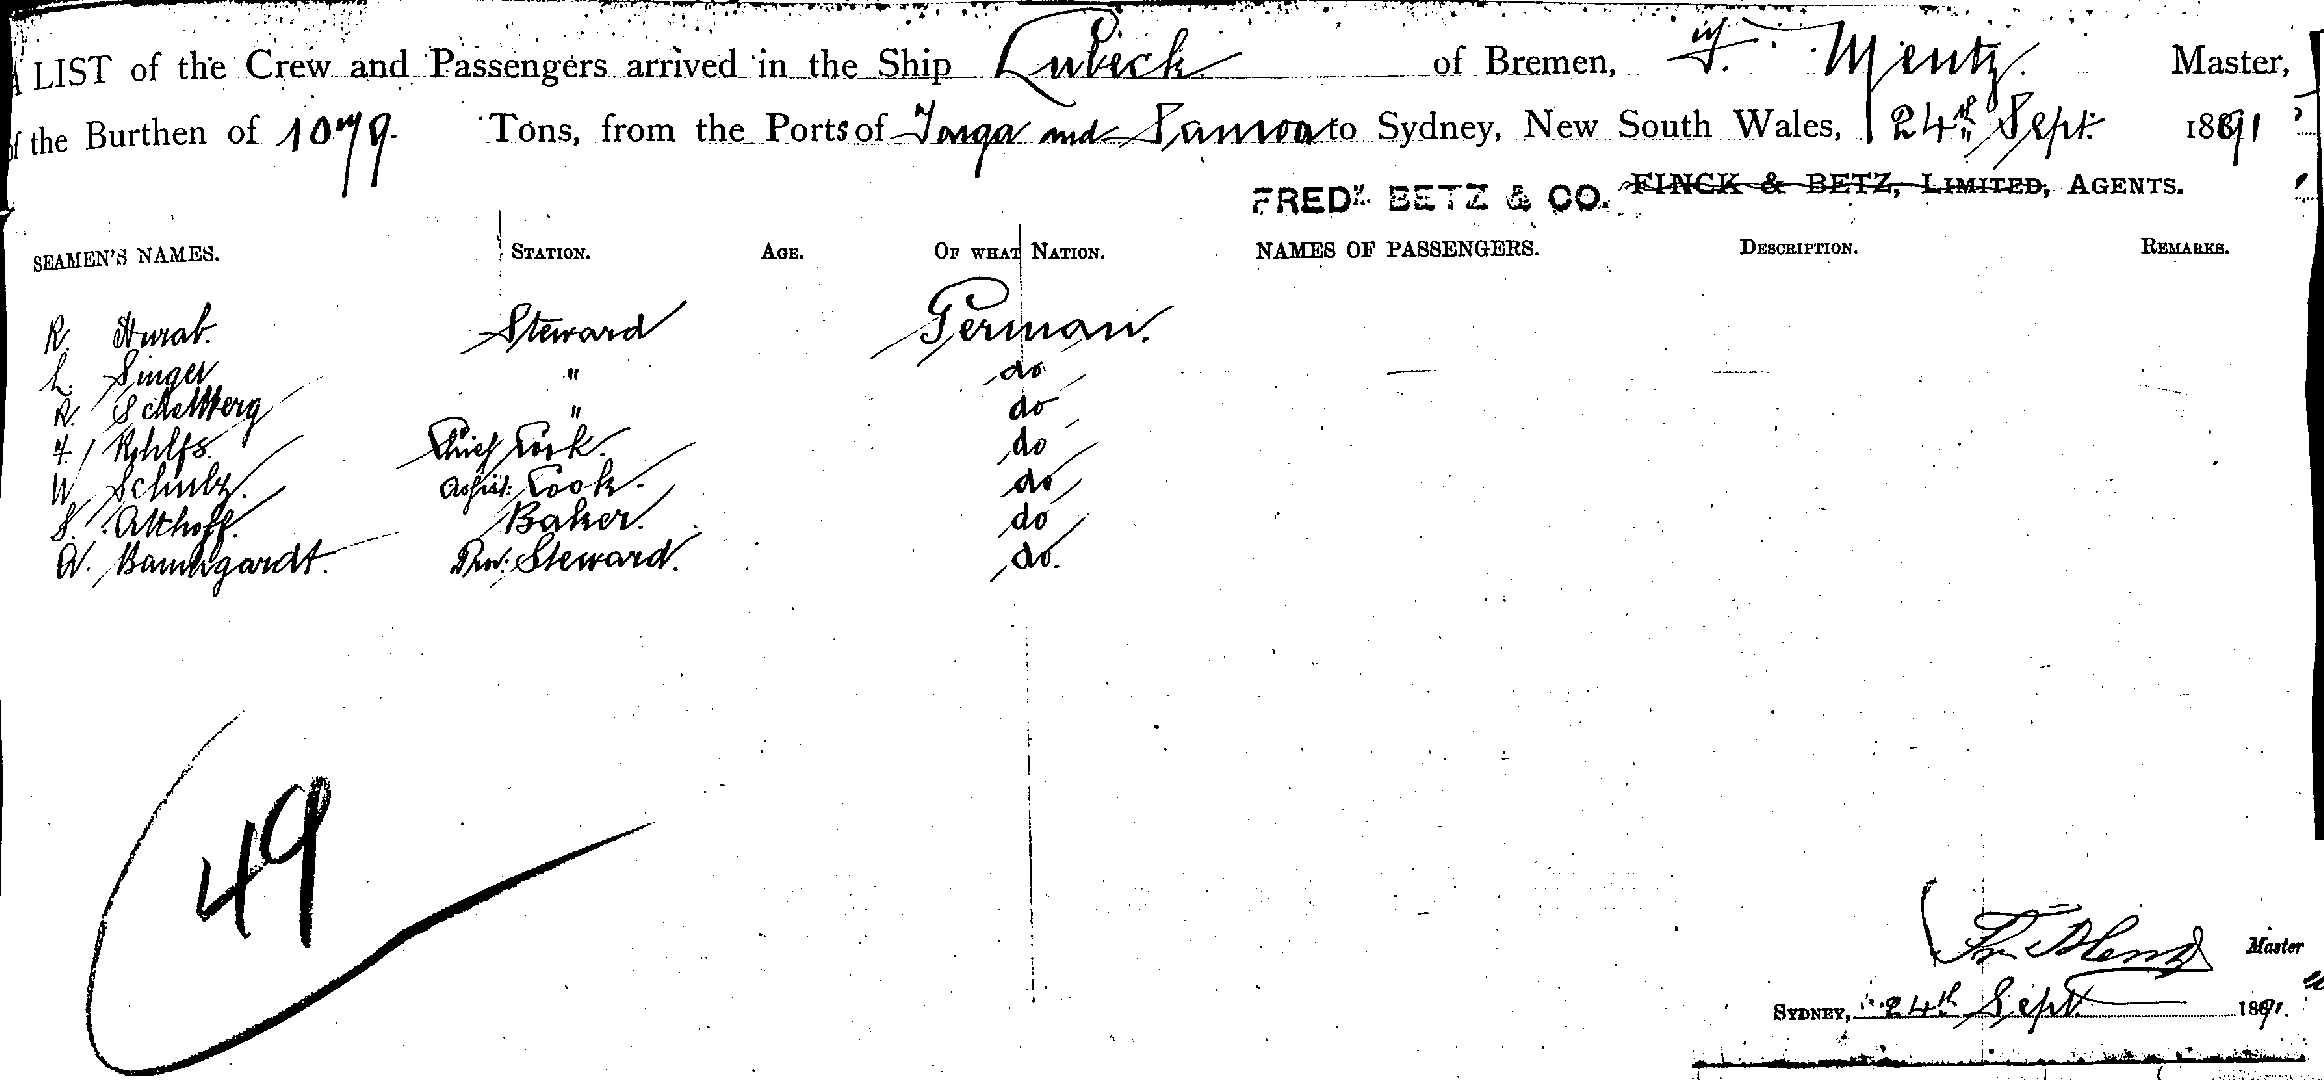 A LIST of the Crew and Passengers arrived in the Ship Lubeck of Bremen, F. Mentz. Master,
of the Burthen of 1079. Tons, from the Ports of Tonga and Samoa to Sydney, New South Wales, 24th Sept. 1891
FREDK BETZ & CO. FINCK & BETZ, LIMITED, AGENTS.
SEAMEN'S NAMES. STATION. AGE. OF WHAT NATION. NAMES OF PASSENGERS. DESCRIPTION. REMARKS.
R. Steward German.
L. Singer " do
R. Schellberg " do
F. Rohlfs. Chief Cook. do
W. Schulz. Assist: Cook. do
S. Althoff. Baker. do
A. Baumgardt. Steward. do.
49
Fr. Mentz Master
SYDNEY, 24th Sept. 1891.